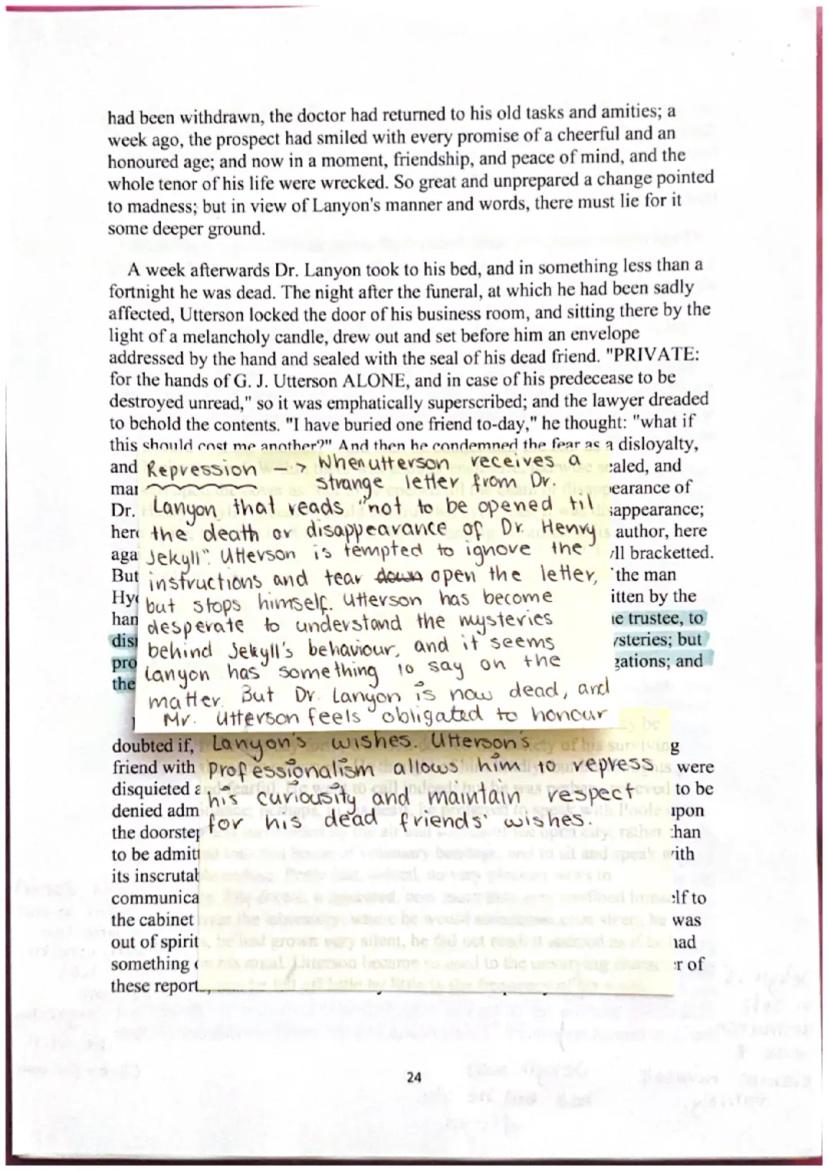 had been withdrawn, the doctor had returned to his old tasks and amities; a
week ago, the prospect had smiled with every promise of a cheerful and an
honoured age; and now in a moment, friendship, and peace of mind, and the
whole tenor of his life were wrecked. So great and unprepared a change pointed
to madness; but in view of Lanyon's manner and words, there must lie for it
some deeper ground.
A week afterwards Dr. Lanyon took to his bed, and in something less than a
fortnight he was dead. The night after the funeral, at which he had been sadly
affected, Utterson locked the door of his business room, and sitting there by the
light of a melancholy candle, drew out and set before him an envelope
addressed by the hand and sealed with the seal of his dead friend. "PRIVATE:
for the hands of G. J. Utterson ALONE, and in case of his predecease to be
destroyed unread," so it was emphatically superscribed; and the lawyer dreaded
to behold the contents. "I have buried one friend to-day," he thought: "what if
this should cost me another?" And then he condemned the fear as a disloyalty,
and
Repression -> When utterson receives a
strange letter from Dr.
Lanyon that reads "not to be opened til
the death or disappearance of Dr. Henry
Jekyll". Utterson is tempted to ignore the
instructions and tear down open the letter,
but stops himself. Utterson has become
desperate to understand the mysteries
behind Jekyll's behaviour, and it seems
Lanyon has something to say on the
matter. But Dr. Lanyon is now dead, and
Mr. Utterson feels obligated to honour
Lanyon's wishes. Utterson's
Professionalism allows him to repress
his curiousity and maintain respect
for his dead friends' wishes.
ealed, and
earance of
Dr. sappearance;
author, here
ll bracketted.
But the man
itten by the
e trustee, to
ysteries; but
gations; and
the
doubted if,
friend with were
disquieted to be
denied adm upon
the doorstep than
to be admitt with
its inscrutab
communica elf to
the cabinet was
out of spirit had
something r of
these report
24